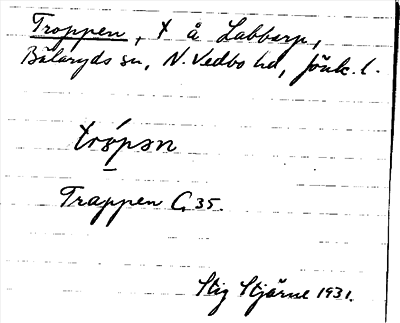 Troppen, + å Labbarp,
Bälaryds sn, N. Vedbo hd, Jönk. l.
trópən
Trappen C, 35.
Stig Stjärne 1931.